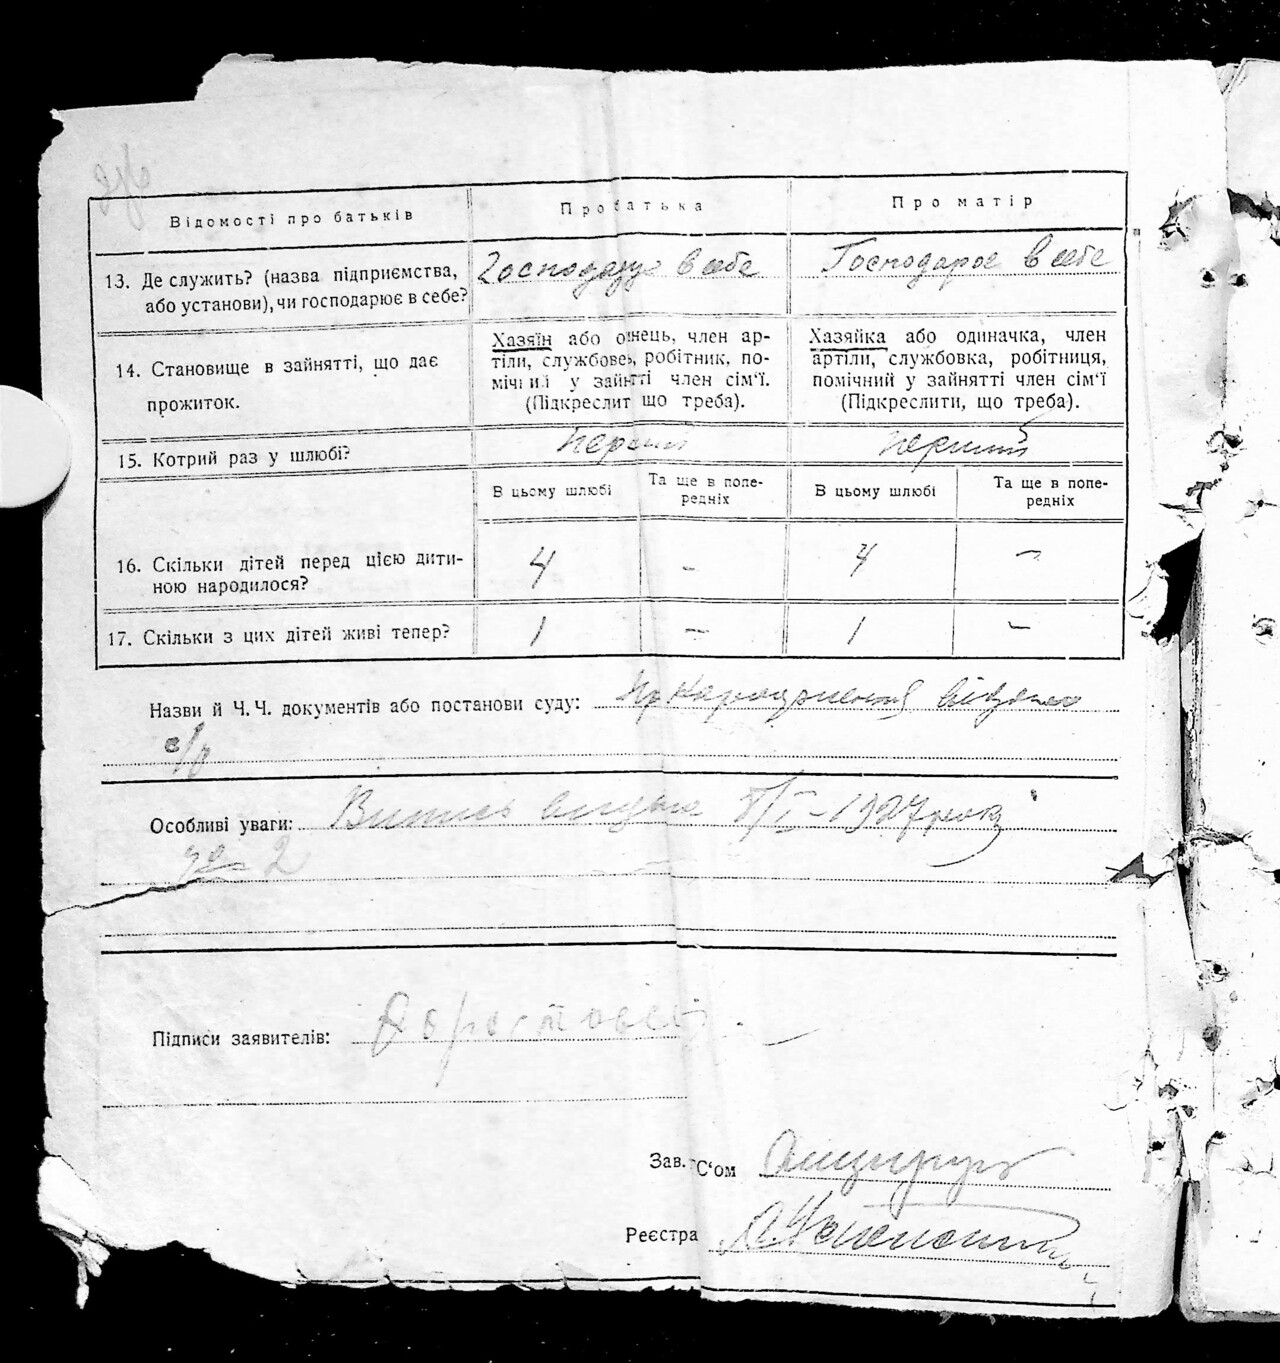 Відомості про батьків
Про батька
Про матір
13. Де служить? (назва підприємства,
або установи), чи господарює в себе?
Господарює в себе
Господарює в себе
14. Становище в зайнятті, що дає
прожиток.
Хазяїн або одинець, член ар-
тіли, службовець, робітник, по-
мічний у зайнятті член сім'ї.
(Підкреслит що треба).
Хазяйка або одиначка, член
артіли, службовка, робітниця,
помічний у зайнятті член сім'ї
(Підкреслити, що треба).
15. Котрий раз у шлюбі?
перший
перший
В цьому шлюбі
Та ще в попе-
редніх
В цьому шлюбі
Та ще в попе-
редніх
16. Скільки дітей перед цією дити-
ною народилося?
4 – 4 –
17. Скільки з цих дітей живі тепер?
1 – 1 –
Назви й Ч. Ч. документів або постанови суду:
с/р
Особливі уваги: Витяг видано 8/I–1927 року
за 2
Підписи заявителів:
Зав. С'ом
Реєстра